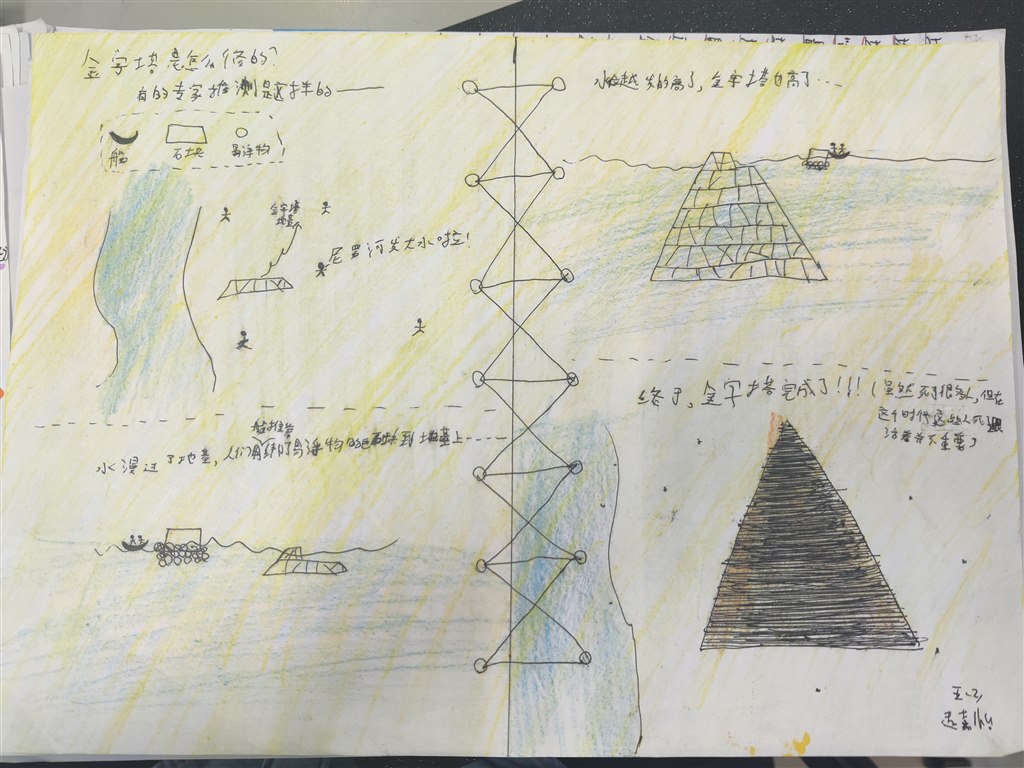 金字塔是怎么修的？
有的专家推测是这样的——
船
石块
易浮物
金字塔
地基
尼罗河发大水啦！
船推着
水漫过了地基，人们用绑了易浮物的石块到地基上……
水位越发的高了，金字塔也高了…
终于，金字塔完成了！！！（虽然死了很多人，但在
这个时代这些人死
活着并不重要）
五（2）